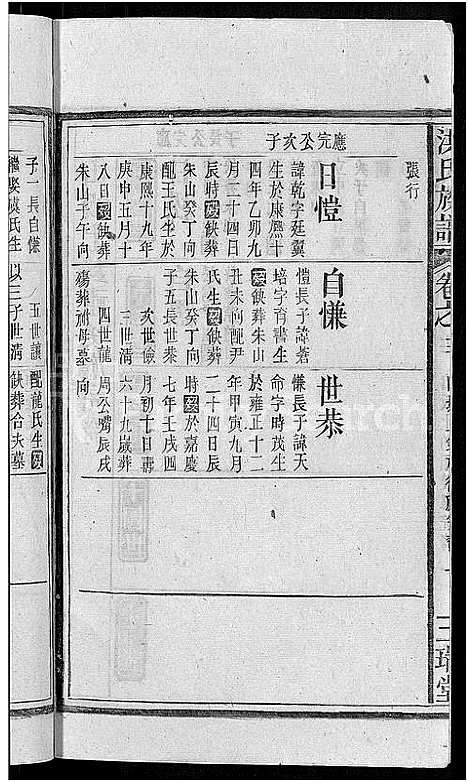 張行
應完公次子
日愷
諱乾字廷翼
生於康熙十
四年乙卯九
月三十四日
辰時歿缺葬
朱山癸丁向
配王氏生於
康熙十九年
庚申五月十
八日歿缺葬
朱山子午向
自慊
愷長子諱
培字育書生
歿缺葬朱山
丑未向配尹
氏生歿缺葬
朱山癸丁向
子五長世恭
次世儉
三世清
四世龍
五世讓
殤葬祔母墓
向
世恭
慊長子諱天
命字時茂生
於雍正十二
年甲寅九月
二十四日辰
時歿於嘉慶
七年壬戌四
月初十日壽
六十九歲葬
周公嘴辰戌
向
配龍氏生歿
缺葬合夫墓
子一長自慊
繼娶
氏生
以三子世清
族譜
卷之
三瑞堂